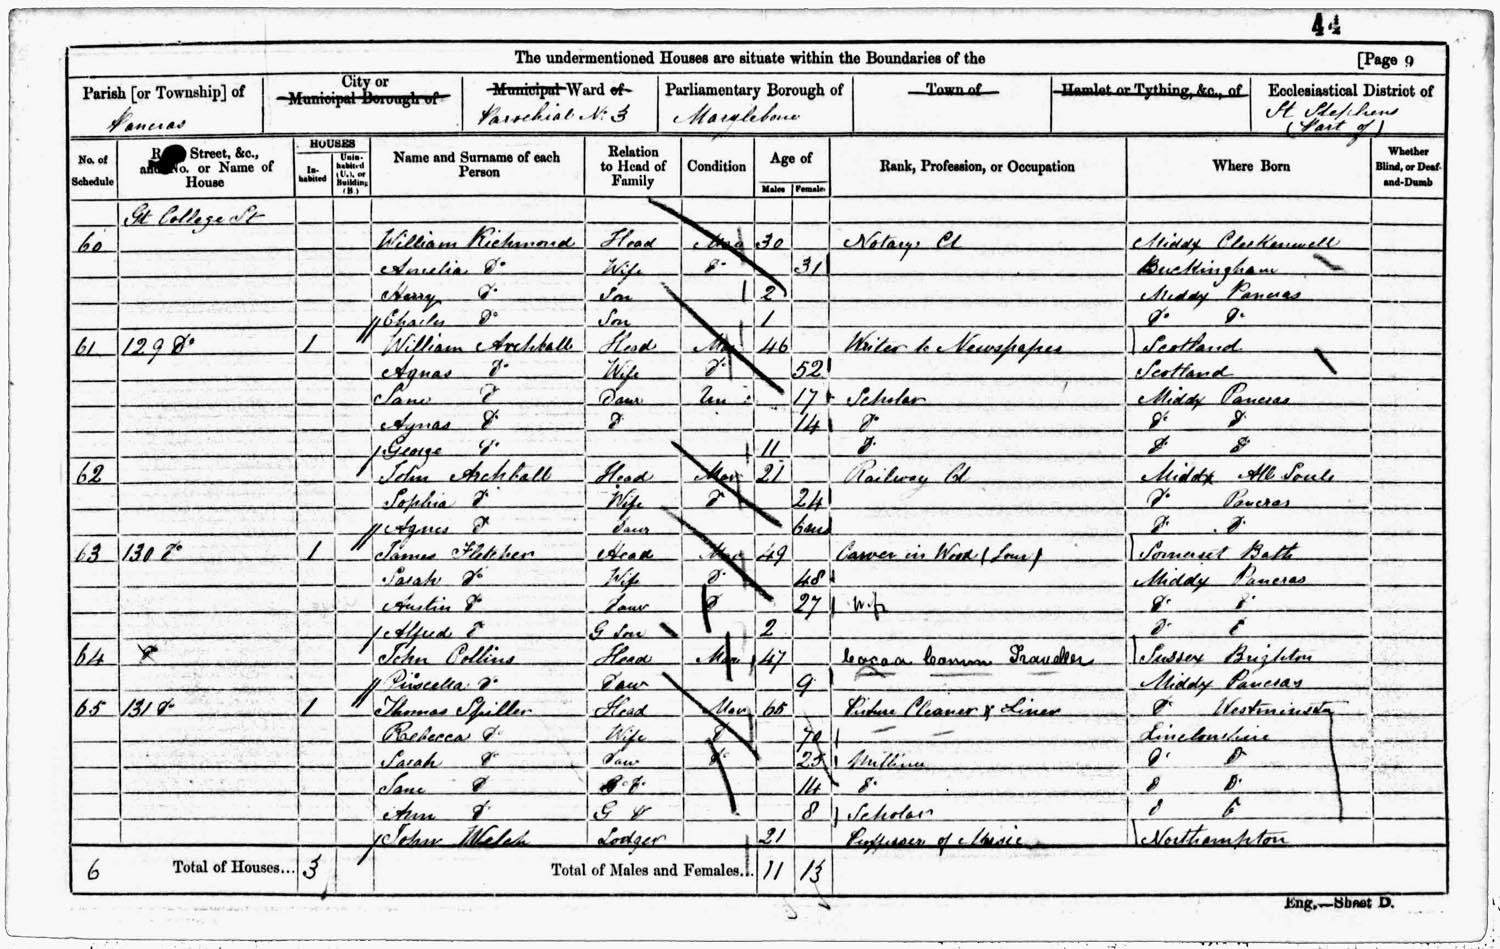 44
The undermentioned Houses are situate within the Boundaries of the [Page 9
Parish [or Township] of City or Municipal Borough of Municipal Ward of Parliamentary Borough of Town of Hamlet or Tything, &c., of Ecclesiastical District of
Pancras Parochial No 3 Marylebone St Stephens
(Part of)
No. of Schedule Street, &c., and No. or Name of House HOUSES Inhabited Uninhabited (U.), or Building (B.) Name and Surname of each Person Relation to Head of Family Condition Age of Males Females Rank, Profession, or Occupation Where Born Whether Blind, or Deaf-and-Dumb
Gt College St
60 William Richmond Head Mar 30 Notary Cl Middx Clerkenwell
Amelia Do Wife Do 31 Buckingham
Harry Do Son 2 Middx Pancras
Charles Do Son 1 Do Do
61 129 Do 1 William Archball Head Mar 46 Writer to Newspapers Scotland
Agnas Do Wife Do 52 Scotland
Jane Do Daur Un 17 Scholar Middx Pancras
Agnas Do D 14 Do Do Do
George Do 11 Do Do Do
62 John Archball Head Mar 21 Railway Cl Middx All Souls
Sophia Do Wife Do 24 Do Pancras
Agnes Do Daur 6 Do Do
63 130 Do 1 James Fletcher Head Mar 49 Carver in Wood Somerset Bath
Sarah Do Wife Do 48 Middx Pancras
Austin Do Daur D 27 Wife Do Do
Alfred Do G Son 2 Do Do
64 Do John Collins Head Mar 47 Cocoa Comm Traveller Sussex Brighton
Priscella Do Daur 9 Middx Pancras
65 131 Do 1 Thomas Spiller Head Mar 65 Picture Cleaner & Liner Do Westminster
Rebecca Do Wife Do 70 Lincolnshire
Sarah Do Daur 25 Milliner Do Do
Jane Do 14 Do Do Do
Ann Do G D 8 Scholar Do Do
John Welch Lodger 21 Professor of Music Northampton
6 Total of Houses... 3 Total of Males and Females... 11 13
Eng.—Sheet D.